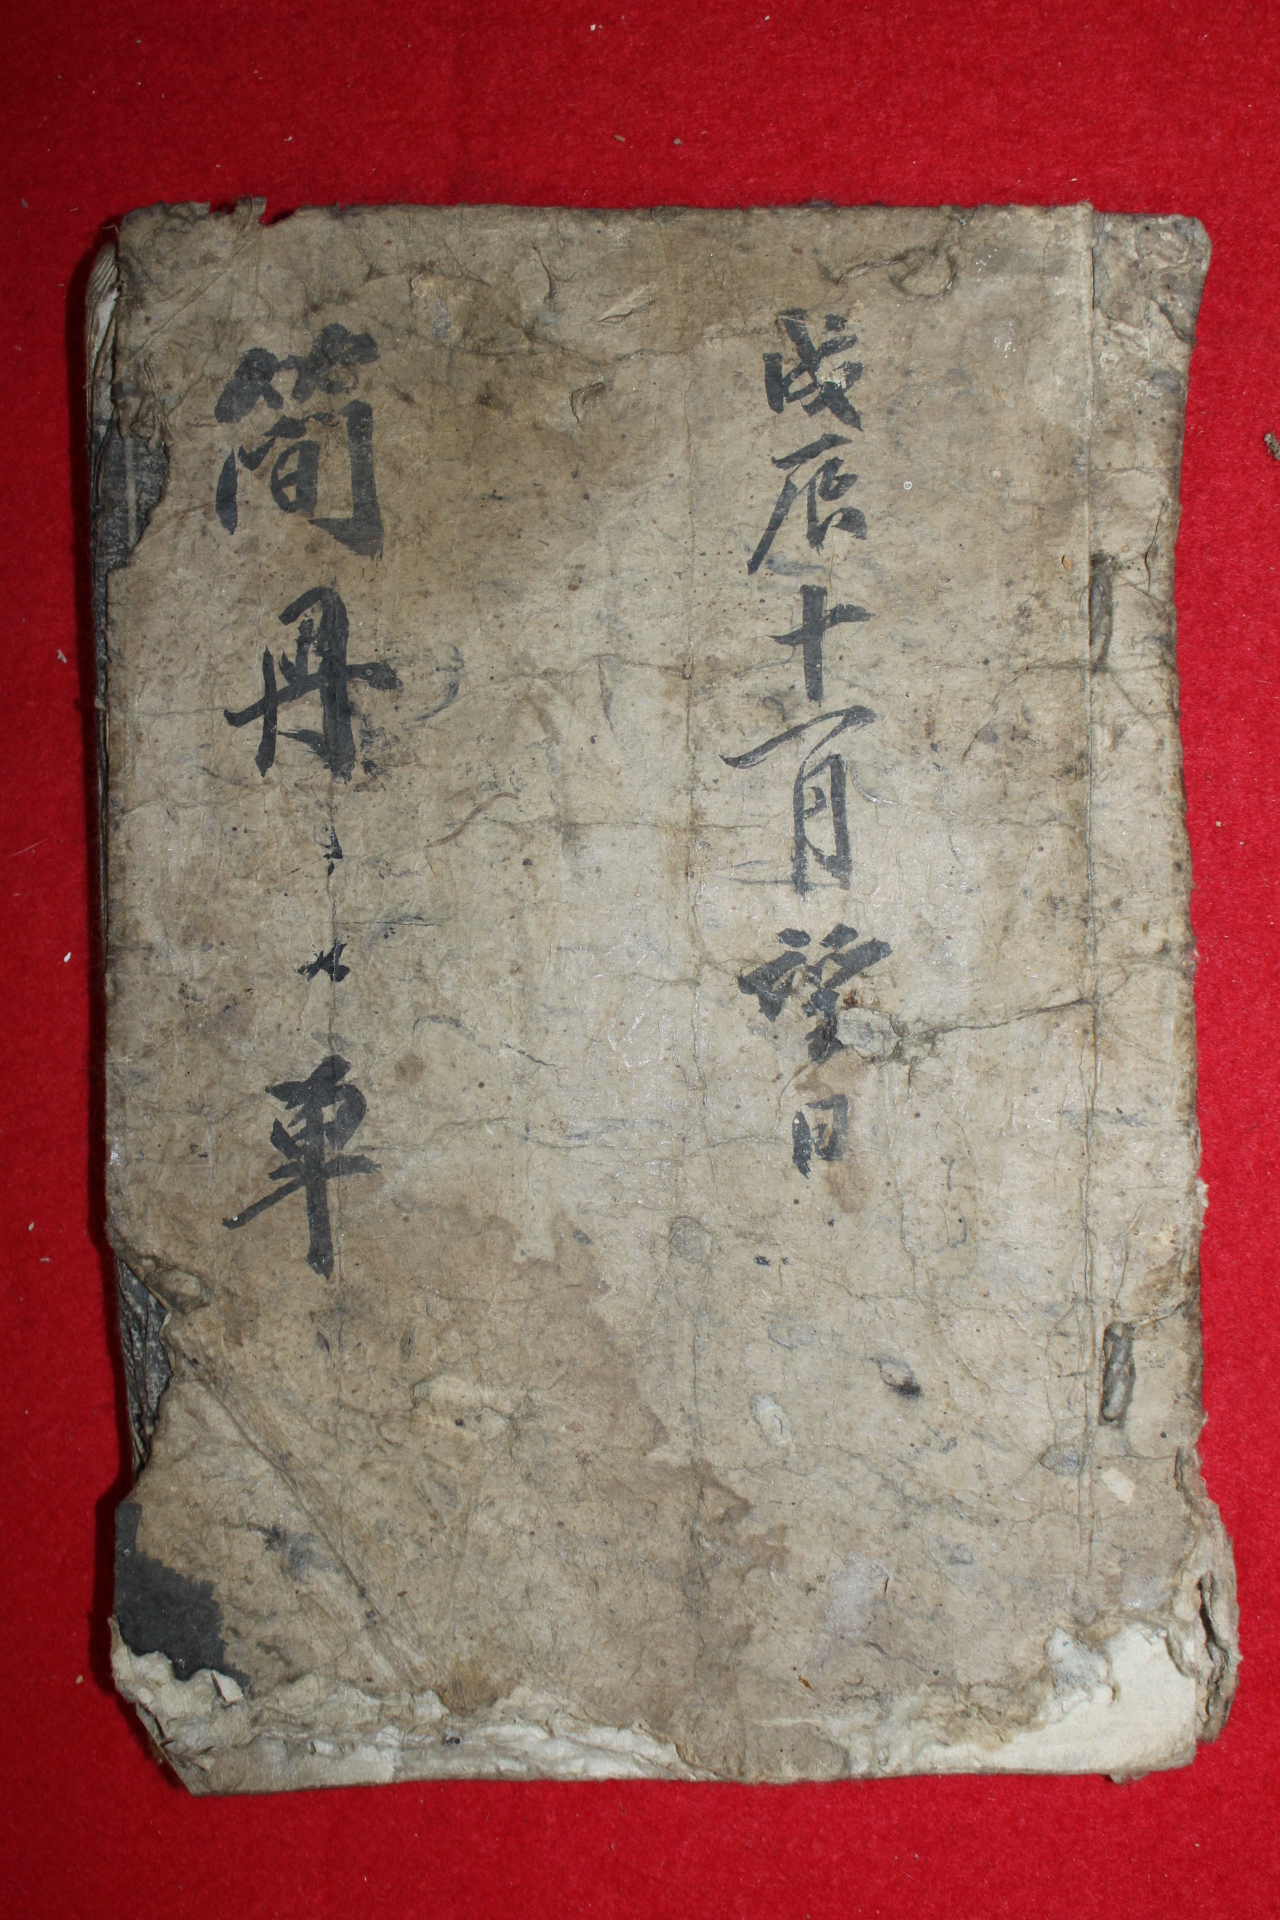 戊辰十一月望日
簡冊車